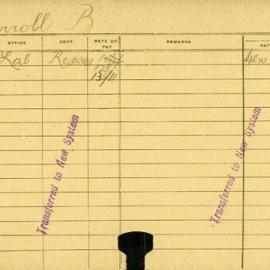 rroll B
OFFICE DEPT. RATE OF PAY REMARKS DAT
Lab
13/11
Transferred to New System
Transferred to New System